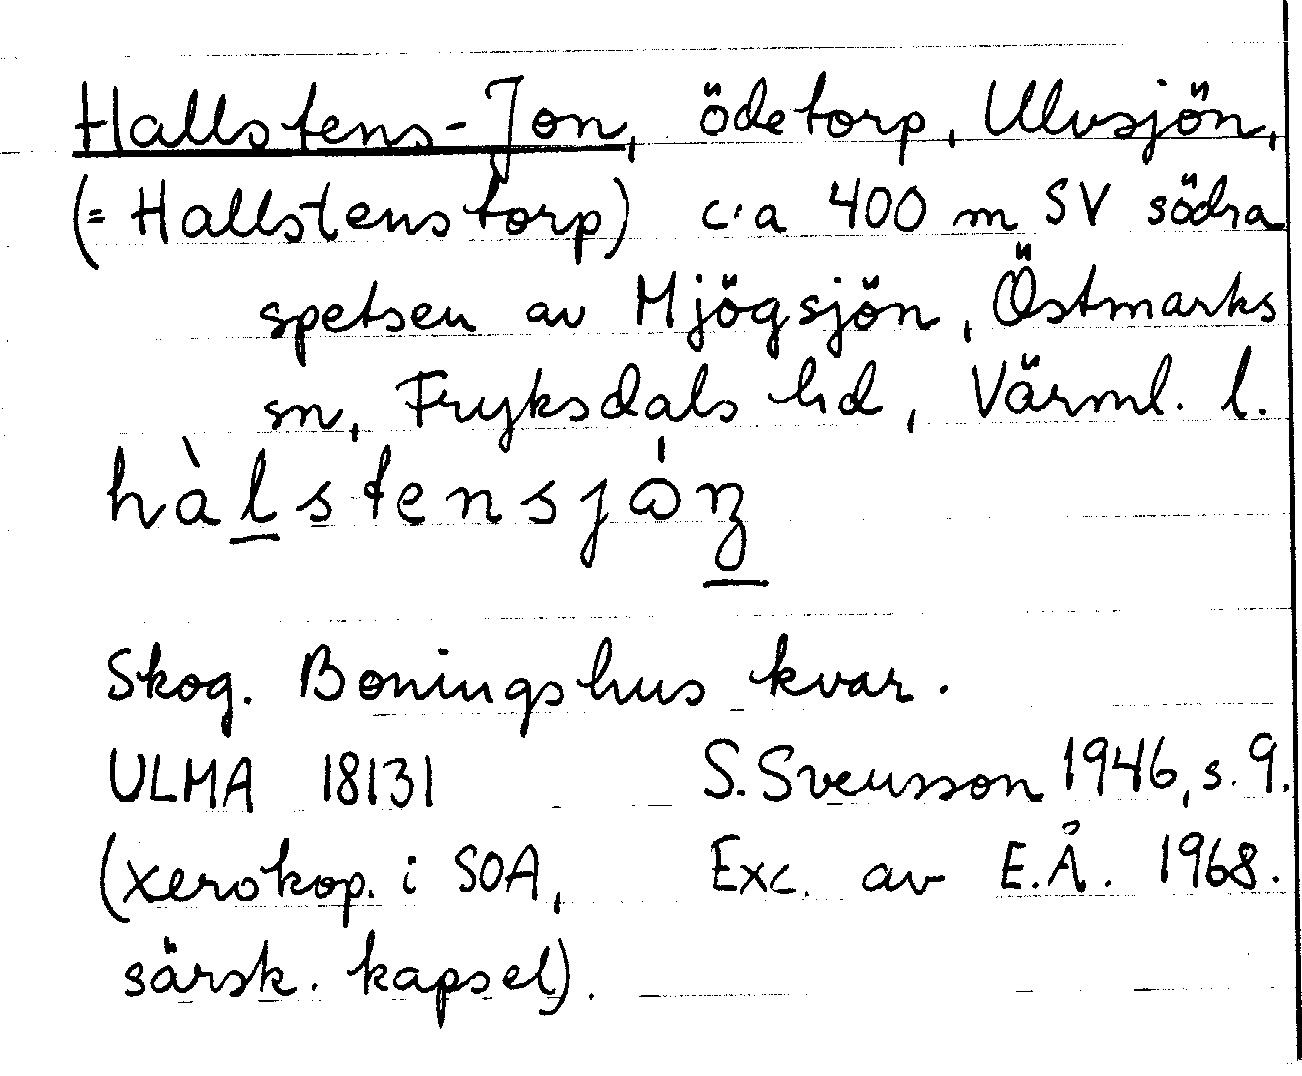 Hallstens-Jon, ödetorp, Ulvsjön,
(= Hallstenstorp) c:a 400 m SV södra
spetsen av Mjögsjön, Östmarks
sn, Fryksdals hd, Värml. l.
Skog. Boningshus kvar.
ULMA 18131 S. Svensson 1946, s. 9.
(xerokop. i SOA, Exc. av E.Å. 1968.
särsk. kapsel).